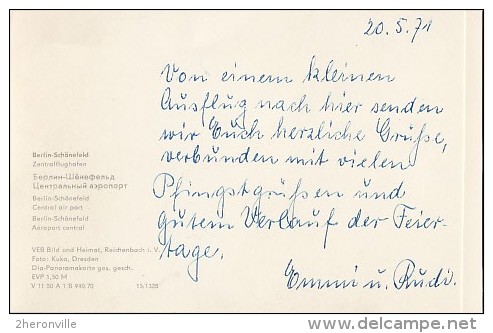 20.5.71
Von einem kleinen
Ausflug nach hier senden
wir Euch herzliche Grüße,
verbunden mit vielen
Pfingstgrüßen und
gutem Verlauf der Feier-
tage.
Emmi u. Rudi.
Berlin-Schönefeld
Zentralflughafen
Берлин-Шёнефельд
Центральный аэропорт
Berlin-Schönefeld
Central air port
Berlin-Schönefeld
Aéroport central
VEB Bild und Heimat, Reichenbach i. V.
Foto: Kuka, Dresden
Dia-Panoramakarte ges. gesch.
EVP 1,50 M
V 11 50 A 1 B 940.70 15/1328
2heronville
www.delcampe.net